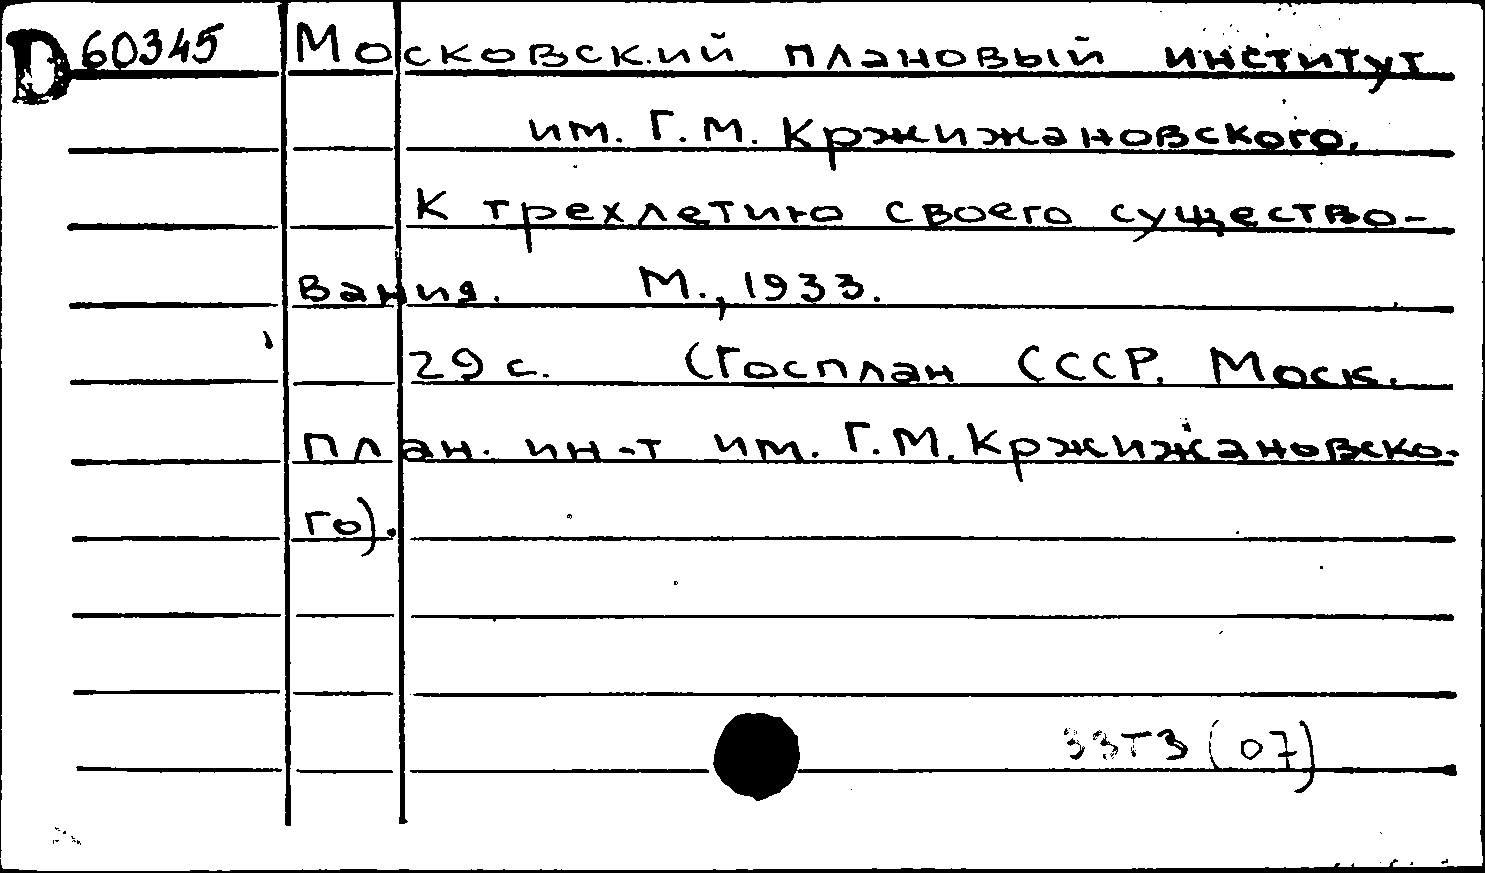 D 60345 Московский плановый институт
им. Г. М. Кржижановского.
К трехлетию своего существо-
вания. М., 1933.
29 с. (Госплан СССР. Моск.
план. ин-т им. Г. М. Кржижановско-
го).
33Т3 (07)